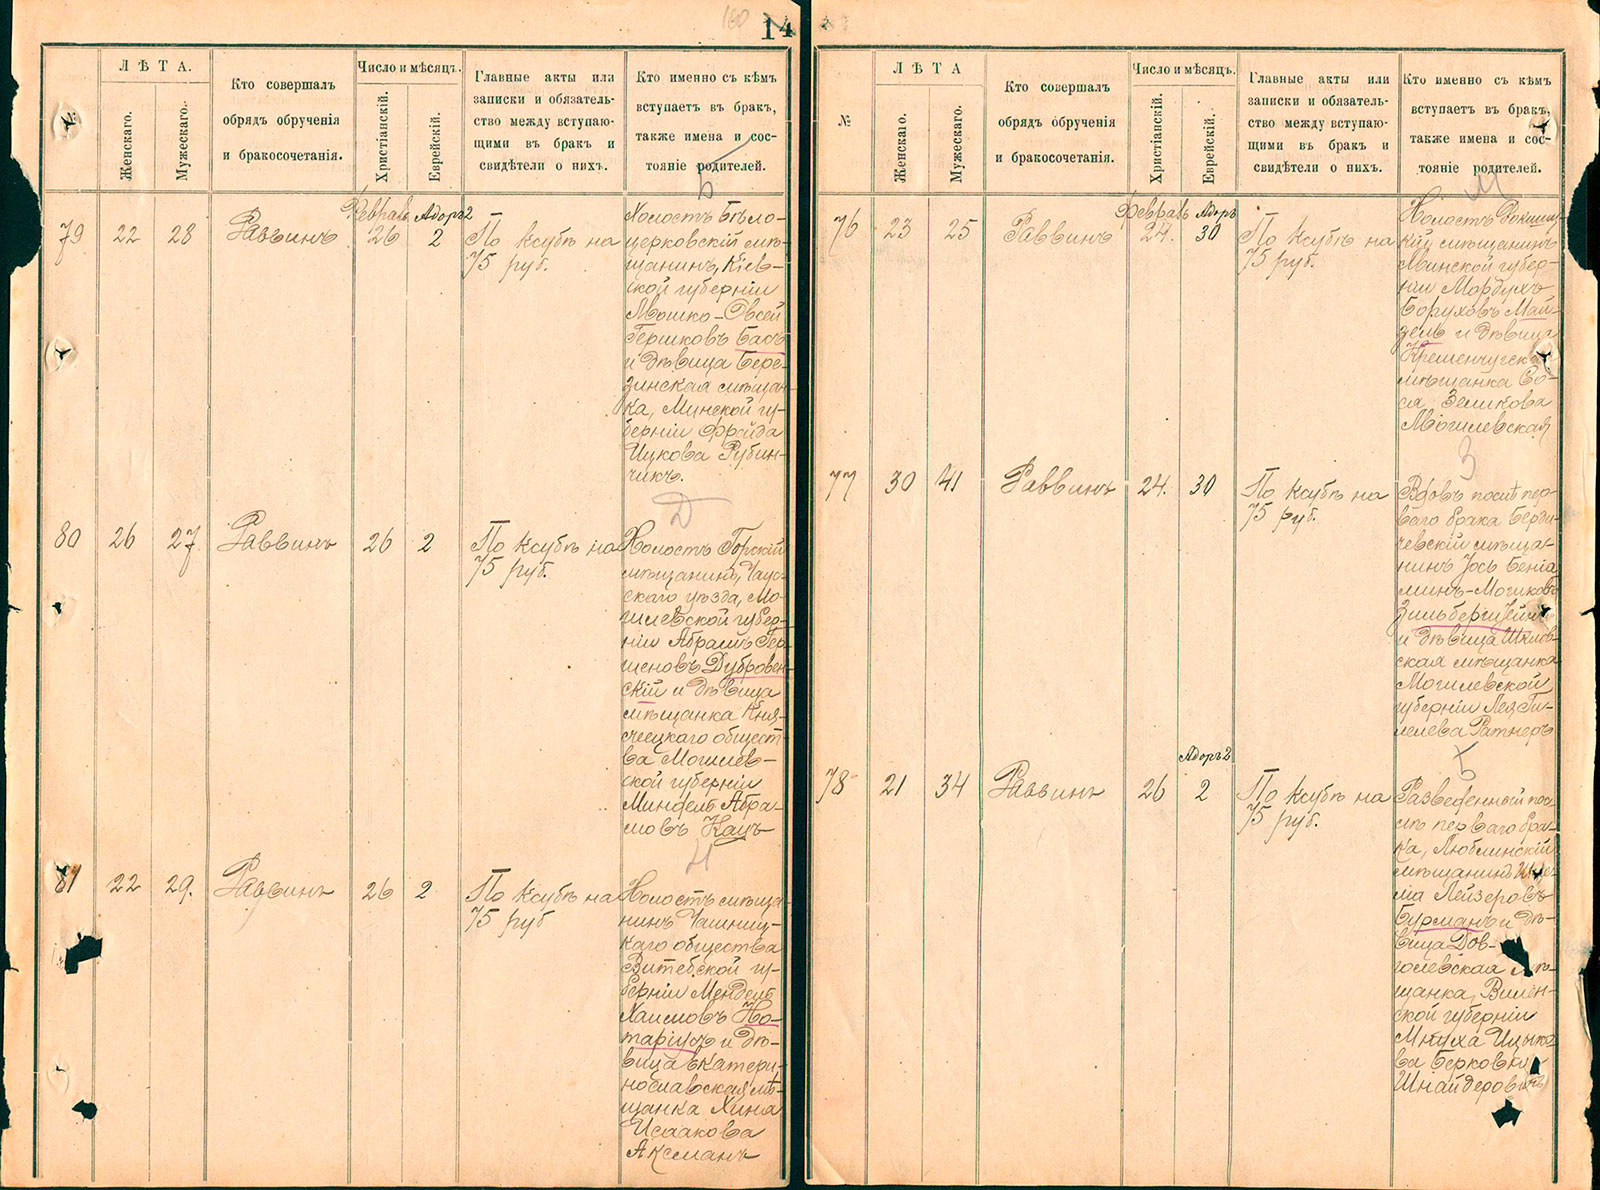 160
14
ЛѢТА.
Женскаго.
Мужескаго.
Кто совершалъ
обрядъ обрученія
и бракосочетанія.
Число и мѣсяцъ.
Христіанскій.
Еврейскій.
Главные акты или
записки и обязатель-
ство между вступаю-
щими въ бракъ и
свидѣтели о нихъ.
Кто именно съ кѣмъ
вступаетъ въ бракъ,
также имена и сос-
тояніе родителей.
Б
79 22 28 Раввинъ Февраль 26 Адоръ 2 2
По ксубѣ на
75 руб.
Холостъ Бѣло-
церковскій мѣ-
щанинъ, Кіев-
ской губерніи
Мошко-Овсей
Гершковъ Басъ
и дѣвица Бере-
зинская мѣщан-
ка, Минской гу-
берніи Фрейда
Ицкова Рубин-
чикъ.
Д
80 26 27 Раввинъ 26 2
По ксубѣ на
75 руб.
Холостъ Горскій
мѣщанинъ, Чаус-
скаго уѣзда, Мо-
гилевской губер-
ніи Абрамъ Гер-
шеновъ Дубровен-
скій и дѣвица
мѣщанка Княж-
ецкаго общест-
ва Могилев-
ской губерніи
Абра-
мовъ Кацъ
Н
81 22 29. Раввинъ 26 2
По ксубѣ на
75 руб
Холостъ мѣща-
нинъ Чашниц-
каго общества
Витебской гу-
берніи Мендель
Хаимовъ Но-
таріусъ и дѣ-
вица Екатери-
нославская мѣ-
щанка Хина
Исаакова
Аксманъ
№
ЛѢТА
Женскаго.
Мужескаго.
Кто совершалъ
обрядъ обрученія
и бракосочетанія.
Число и мѣсяцъ.
Христіанскій.
Еврейскій.
Главные акты или
записки и обязатель-
ство между вступаю-
щими въ бракъ и
свидѣтели о нихъ.
Кто именно съ кѣмъ
вступаетъ въ бракъ,
также имена и сос-
тояніе родителей.
М
76 23 25 Раввинъ Февраль 24. Адоръ 30
По ксубѣ на
75 руб.
Холостъ Докшиц-
кій мѣщанинъ
Минской губер-
ніи Мордухъ
Боруховъ Май-
зель и дѣвица
Кременчугская
мѣщанка Со-
ся Зеликова
Могилевская
З
77 30 41 Раввинъ 24. 30
По ксубѣ на
75 руб.
Вдовъ послѣ пер-
ваго брака Берди-
чевскій мѣща-
нинъ Іось Беніа
минъ-Мошковъ
Зильберштейнъ
и дѣвица Шклов-
ская мѣщанка
Могилевской
губерніи Лея Ги-
лелева Ратнеръ
Б
78 21 34 Раввинъ 26 Адоръ 2 2
По ксубѣ на
75 руб.
Разведенный пос-
лѣ перваго бра-
ка, Люблинскій
мѣщанинъ
Лейзеровъ
Бурманъ и дѣ-
вица Дов-
голевская мѣ-
щанка, Вилен-
ской губерніи
Мнуха Ицыко
ва Берковна
Шнайдеровичъ